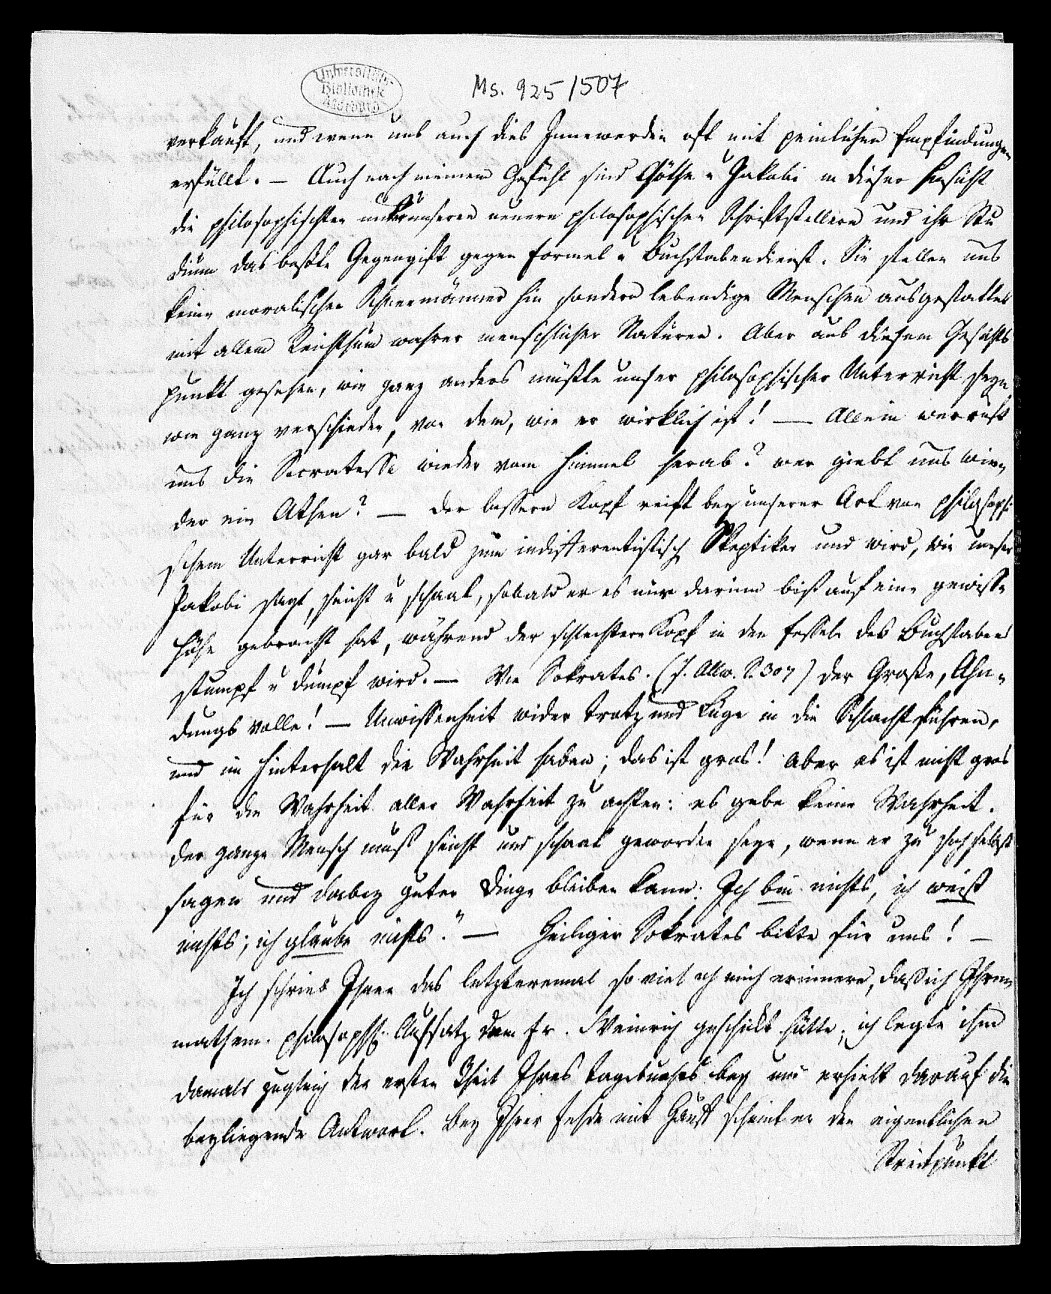 Universitäts
Bibliothek
Marburg
Ms. 925/507
verkauft, und wenn uns auch dies Innewerden oft mit peinlichen Empfindungen
erfüllt. — Auch nach meinem Gefühl sind Göthe u Jakobi in dieser Hinsicht
die philosophischten unter unseren neuern philosophischen Schriftstellern und ihr Stu
dium das beßte Gegengift gegen Formel u Buchstabendienst. Sie stellen uns
keine moralischen Gliedermänner hin sondern lebendige Menschen ausgestattet
mit allem Reichthum wahrer menschlicher Naturen. Aber aus diesem Gesichts
punkt gesehen, wie ganz anders müßte unser philosophischer Unterricht seyn
wie ganz verschieden, von dem, wie er wirklich ist! — Allein wer ruft
uns die Socratesse wieder vom Himmel herab? wer giebt uns wie⸗
der ein Athen? — Der bessere Kopf reift bey unserer Art von philosophi
schem Unterricht gar bald zum indifferentistisch Skeptiker und wird, wie unser
Jakobi sagt, seicht u schaal, sobald er es nur darinn bis auf eine gewisse
Höhe gebracht hat, während der schlechtere Kopf in den Fesseln des Buchstaben
stumpf u dumpf wird. — Wie Sokrates. (J. Allw. S. 307) der Große, Ahn⸗
dungsvolle! — Unwissenheit wider Trotz und Lüge in die Schlacht führen,
und im Hinterhalt die Wahrheit haben; das ist gros! Aber es ist nicht gros
für die Wahrheit aller Wahrheit zu achten: es gebe keine Wahrheit.
Der ganze Mensch muß seicht und schaal geworden seyn, wenn er zu sich selbst
sagen und dabey guter Dinge bleiben kann: Ich bin nichts, ich weiß
nichts; ich glaube nichts." — Heiliger Sokrates bitte für uns! —
Ich schrieb Ihnen das letzteremal so viel ich mich erinnere, daß ich Ihren
mathem. philosoph. Aufsatz dem Hr. Weinrich geschickt hätte; ich legte ihm
damals zugleich den ersten Theil Ihres Tagebuches bey und erhielt darauf die
beyliegende Antwort. Bey Ihrer Fehde mit scheint er den eigentlichen
Streitpunkt